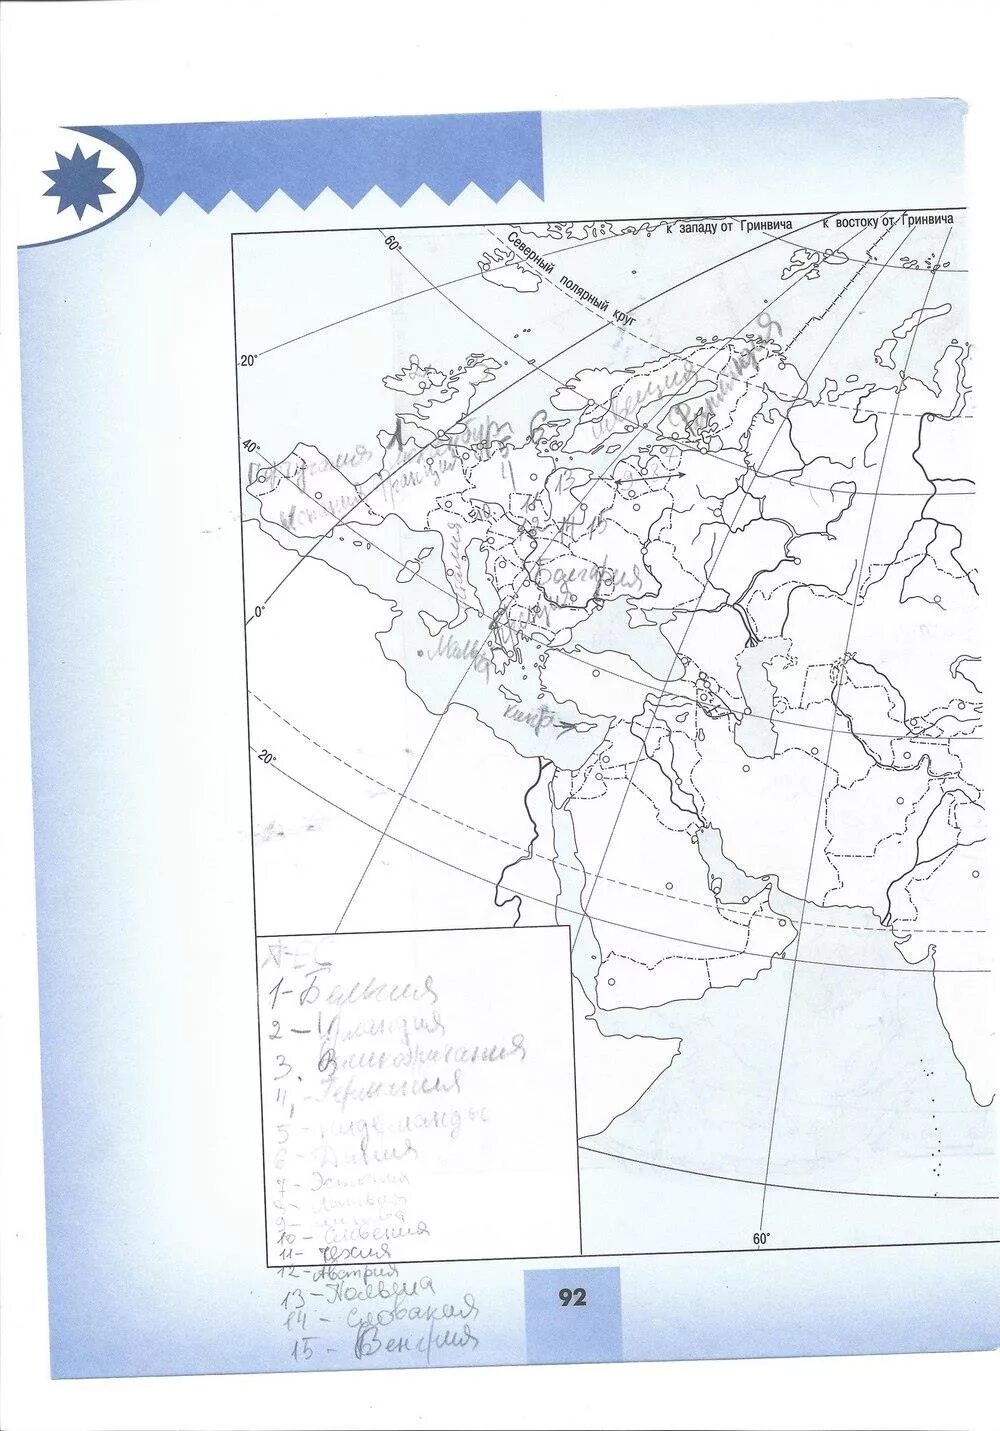 к западу от Гринвича
к востоку от Гринвича
60°
Северный полярный круг
20°
40°
0°
20°
60°
Финляндия
Швеция
Португалия
Испания
Франция
Италия
Болгария
Греция
Мальта
Кипр
1
2
6
5
4
13
11
12
14
15
10
А-ЕС
1-Бельгия
2-Ирландия
3. Великобритания
4,-Германия
5-Нидерланды
6-Дания
7-Эстония
8-Латвия
9-Литва
10-Словения
11-Чехия
12-Австрия
13-Польша
14-Словакия
15-Венгрия
92